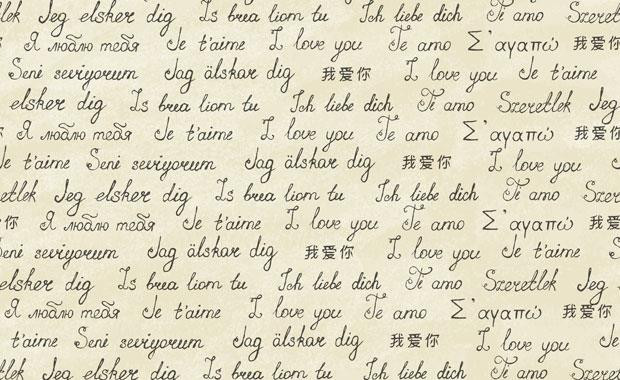 lek Jeg elsker dig Is brea liom tu Ich liebe dich Ti amo Szeretl
Я люблю тебя Je t'aime I love you Te amo Σ'αγαπώ 我爱你
Seni seviyorum Jag älskar dig 我爱你 I love you Je t'aime
elsker dig Is brea liom tu Ich liebe dich Ti amo Szeretlek Jeg
Я люблю тебя Je t'aime I love you Te amo Σ'αγαπώ 我爱你
Je t'aime Seni seviyorum Jag älskar dig 我爱你 I love you
etlek Jeg elsker dig Is brea liom tu Ich liebe dich Ti amo Szere
你 Я люблю тебя Je t'aime I love you Te amo Σ'αγαπώ 我爱
Seni seviyorum Jag älskar dig 我爱你 I love you Je t'aime
elsker dig Is brea liom tu Ich liebe dich Ti amo Szeretlek Jeg
Я люблю тебя Je t'aime I love you Te amo Σ'αγαπώ 我爱你
t'aime Seni seviyorum Jag älskar dig 我爱你 I love you Je
tlek Jeg elsker dig Is brea liom tu Ich liebe dich Ti amo Szeret